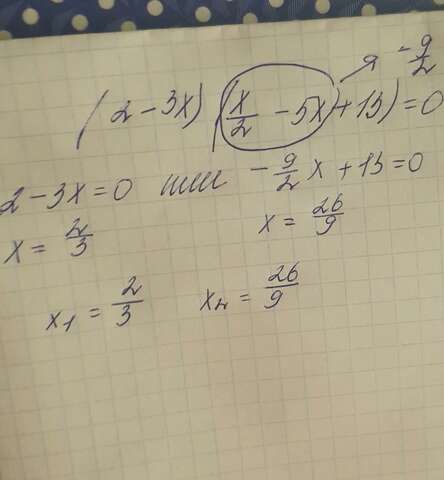 -9/2
(2 - 3x) (x/2 - 5x) + 13) = 0
2 - 3x = 0 или -9/2 x + 13 = 0
x = 2/3 x = 26/9
x₁ = 2/3 x₂ = 26/9